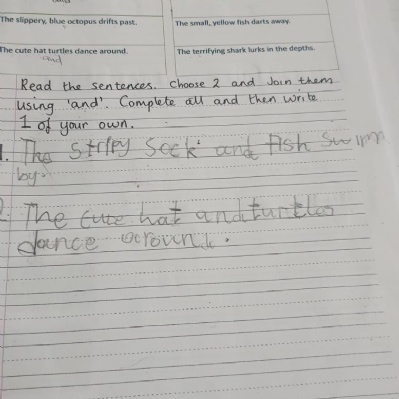 The slippery, blue octopus drifts past.
The small, yellow fish darts away.
The cute hat turtles dance around.
and
The terrifying shark lurks in the depths.
Read the sentences. Choose 2 and Join them
using 'and'. Complete all and then write
1 of your own.
1. The stripy Seek and fish swim
by.
2 The cute hat and turtles
dance around.